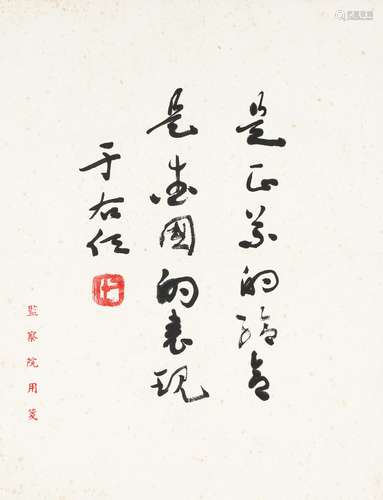 是正義的結合
是愛國的表現
于右任
監察院用箋